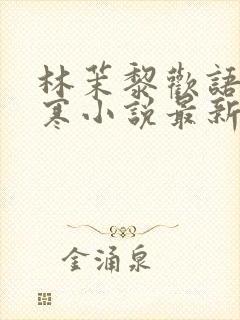 林茉黎歡語
寒小説最新
金涌泉